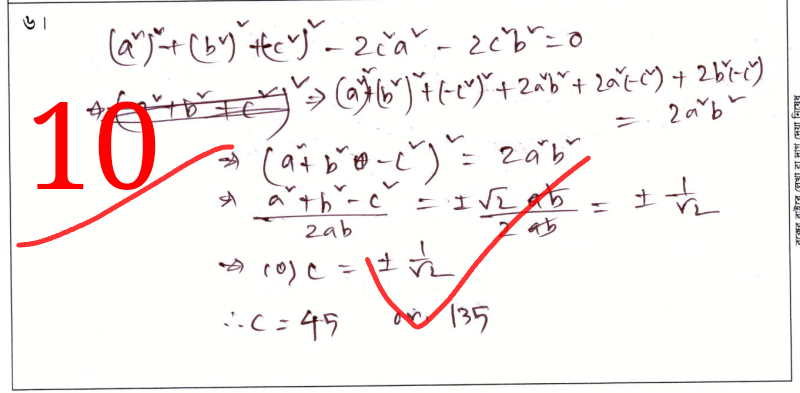 ৬।
(a²)² + (b²)² + (-c²)² - 2c²a² - 2c²b² = 0
⇒ (a² + b² + c²)² ⇒ (a²)² + (b²)² + (-c²)² + 2a²b² + 2a²(-c²) + 2b²(-c²)
= 2a²b²
10
⇒ (a² + b² - c²)² = 2a²b²
⇒ (a² + b² - c²)/2ab = ± √2 ab/2 ab = ± 1/√2
⇒ cos C = ± 1/√2
∴ C = 45 or, 135